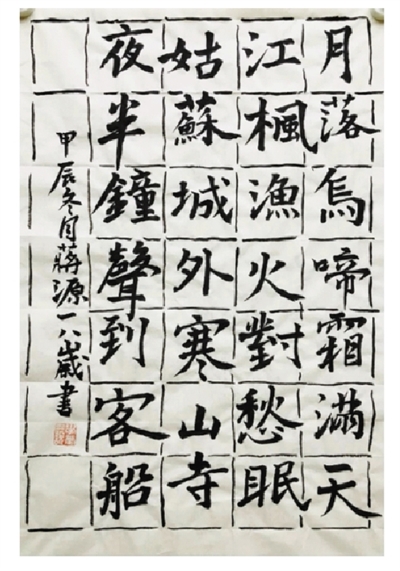 月落烏啼霜滿天
江楓漁火對愁眠
姑蘇城外寒山寺
夜半鐘聲到客船
甲辰冬月蔣源一八歲書